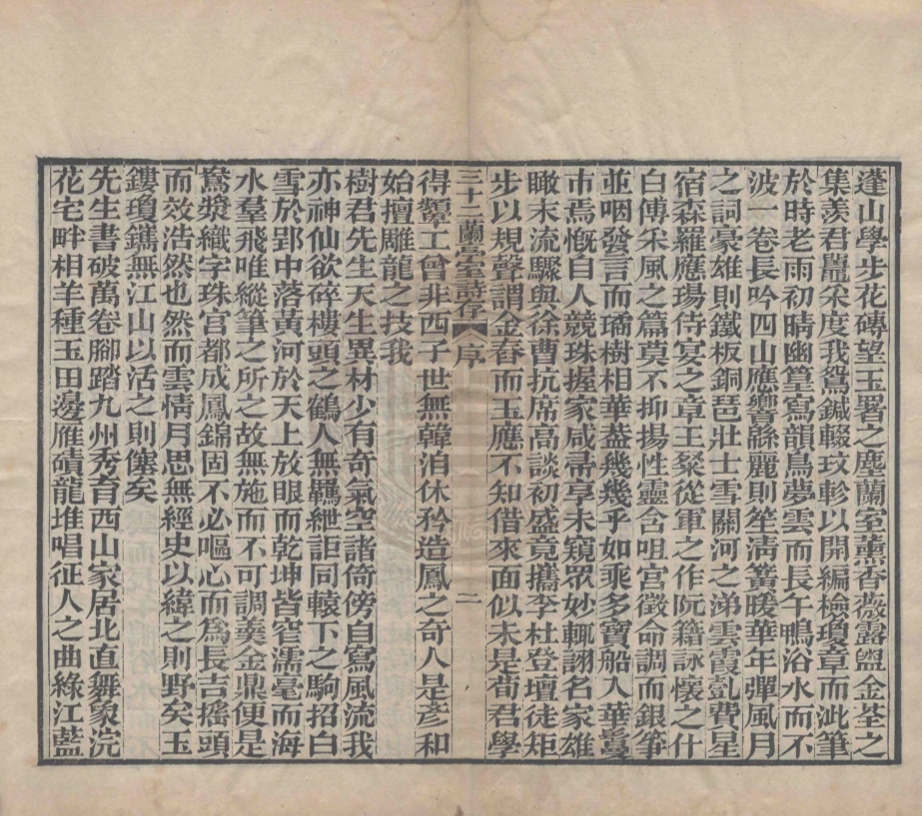 蓬山學步花磚望玉署之塵蘭室薰香薇露盥金荃之
集羨君鼉采度我鴛鍼輟玟軫以開編檢瓊章而泚筆
於時老雨初晴幽篁寫韻鳥夢雲而長午鴨浴水而不
波一卷長吟四山應響緜麗則笙淸簧暖華年彈風月
之詞豪雄則鐵板銅琶壯士雪關河之涕雲霞亂費星
宿森羅應瑒侍宴之章王粲從軍之作阮籍詠懷之什
白傅采風之篇莫不抑揚性靈含咀宮徵命調而銀箏
並咽發言而璚樹相華葢幾幾乎如乘多寶船入華鬘
市焉慨自人競珠握家咸帚享未窺眾妙輒詡名家雄
瞰末流驟與徐曹抗席高談初盛竟攜李杜登壇徒矩
步以規聲謂金舂而玉應不知借來面似未是荀君學
三十二蘭亭室詩存 序 二
得顰工曾非西子世無韓洎休矜造鳳之奇人是彥和
始擅雕龍之技我
樹君先生天生異材少有奇氣空諸倚傍自寫風流我
亦神仙欲碎樓頭之鶴人無羈紲詎同轅下之駒招白
雪於郢中落黃河於天上放眼而乾坤皆窄濡毫而海
水羣飛唯縱筆之所之故無施而不可調羹金鼎便是
駕漿織字珠宮都成鳳錦固不必嘔心而爲長吉搖頭
而效浩然也然而雲情月思無經史以緯之則野矣玉
鏤瓊鐫無江山以活之則僿矣
先生書破萬卷腳踏九州秀育西山家居北直舞象浣
花宅畔相羊種玉田邊雁磧龍堆唱征人之曲綠江藍